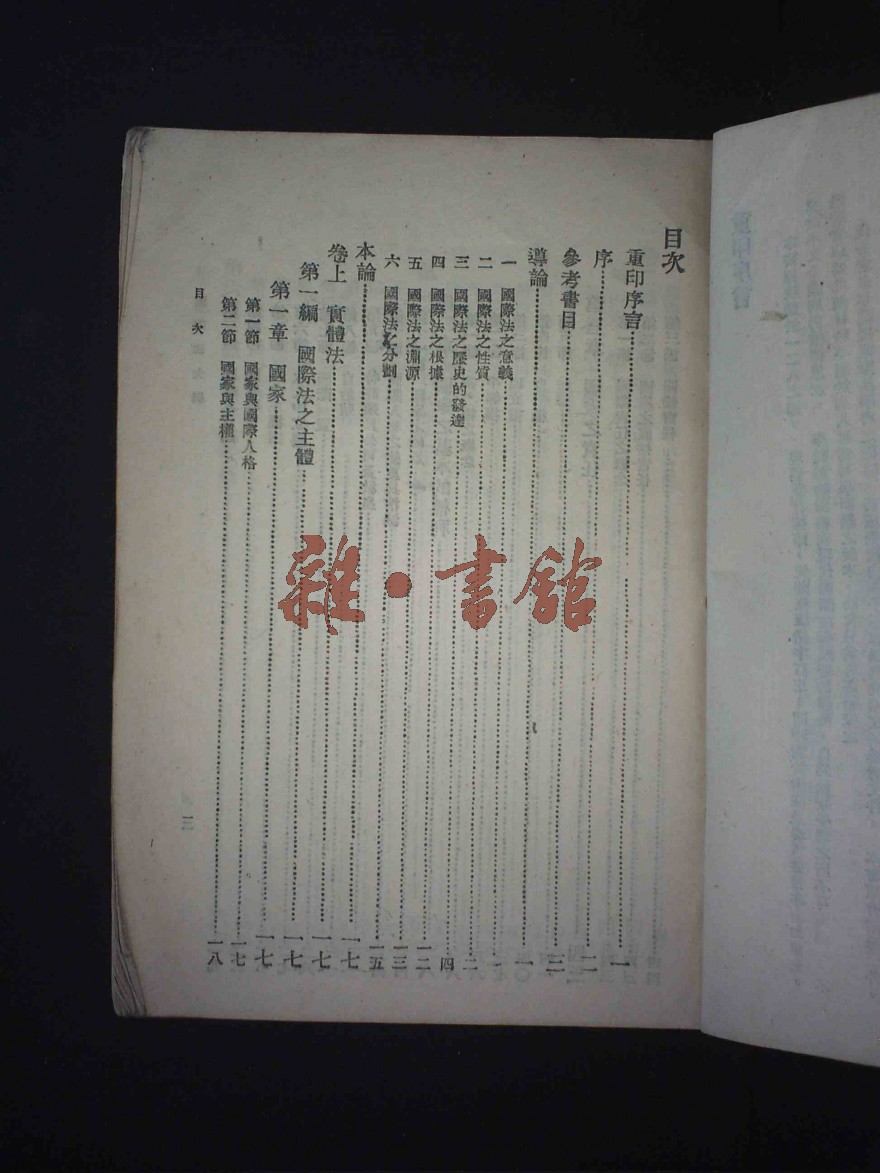 目次
重印序言……一
序……二
參考書目……三
導論……一
一 國際法之意義……一
二 國際法之性質……二
三 國際法之歷史的發達……四
四 國際法之根據……一二
五 國際法之淵源……一三
六 國際法之分劃……一五
本論……一七
卷上 實體法……一七
第一編 國際法之主體……一七
第一章 國家……一七
第一節 國家與國際人格……一七
第二節 國家與主權……一八
目次
一
雜·書館
重印序言